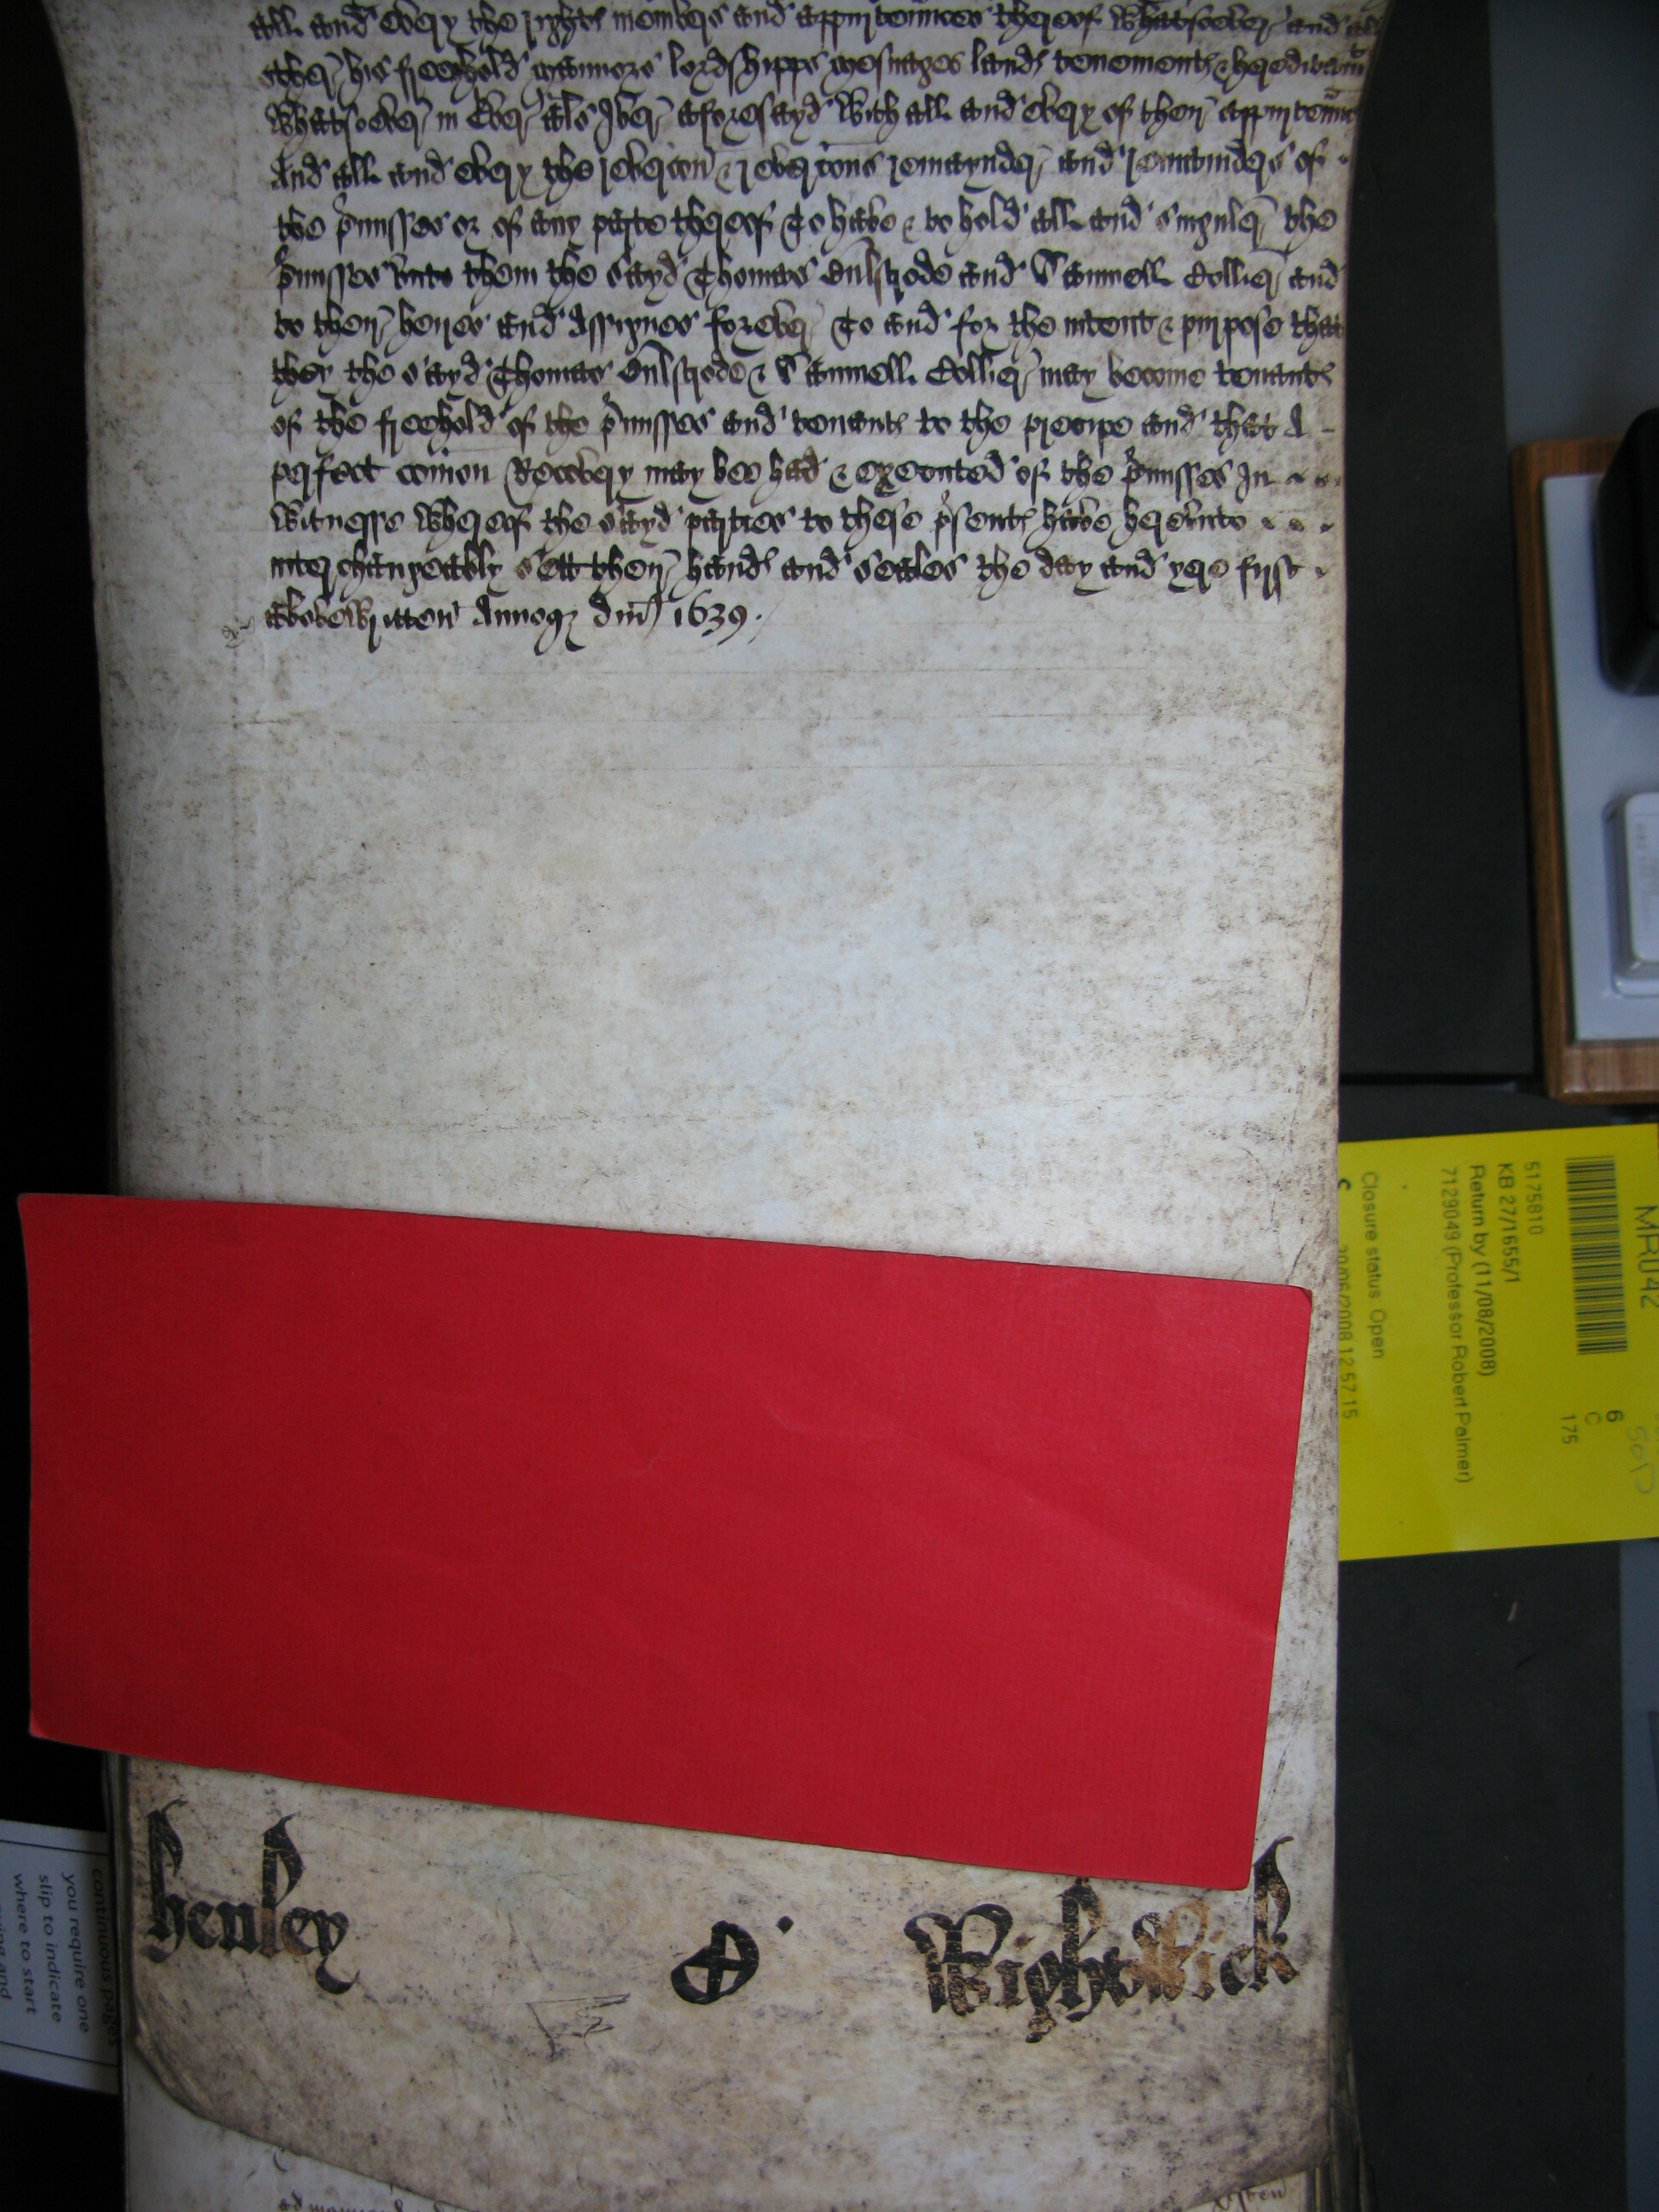 all and every the rights members and appurtennces thereof whatsoever and all
other his freehold mannors lordshipps mesuages lands tenements & hereditam
whatsoever in Ever als Iver aforesayd with all and every of their appurtennc
And all and every the revercon & revercons remaynder and remainders of
the pmisses or of any parte thereof To have & to hold all and singuler the
pmisses unto them the sayd Thomas and Samuell Collier and
to their heires and Assignes forever To and for the intent & purpose that
they the sayd Thomas & Samuell Collier may become tenants
of the freehold of the pmisses and tenants to the precipe and that A
perfect comon Recovery may bee had & executed of the pmisses In
witnesse whereof the sayd parties to these psents have hereunto
interchangeably sett their hands and seales the day and yere fyrst
abovewritten Annoq dni 1639.
henley
Wightwick
MRU42
5175810
KB 27/1655/1
Return by (11/08/2008)
7129049 (Professor Robert Palmer)
Closure status: Open
20/06/2008 12:57:15
6
C
175
continuous pages
you require one
slip to indicate
where to start